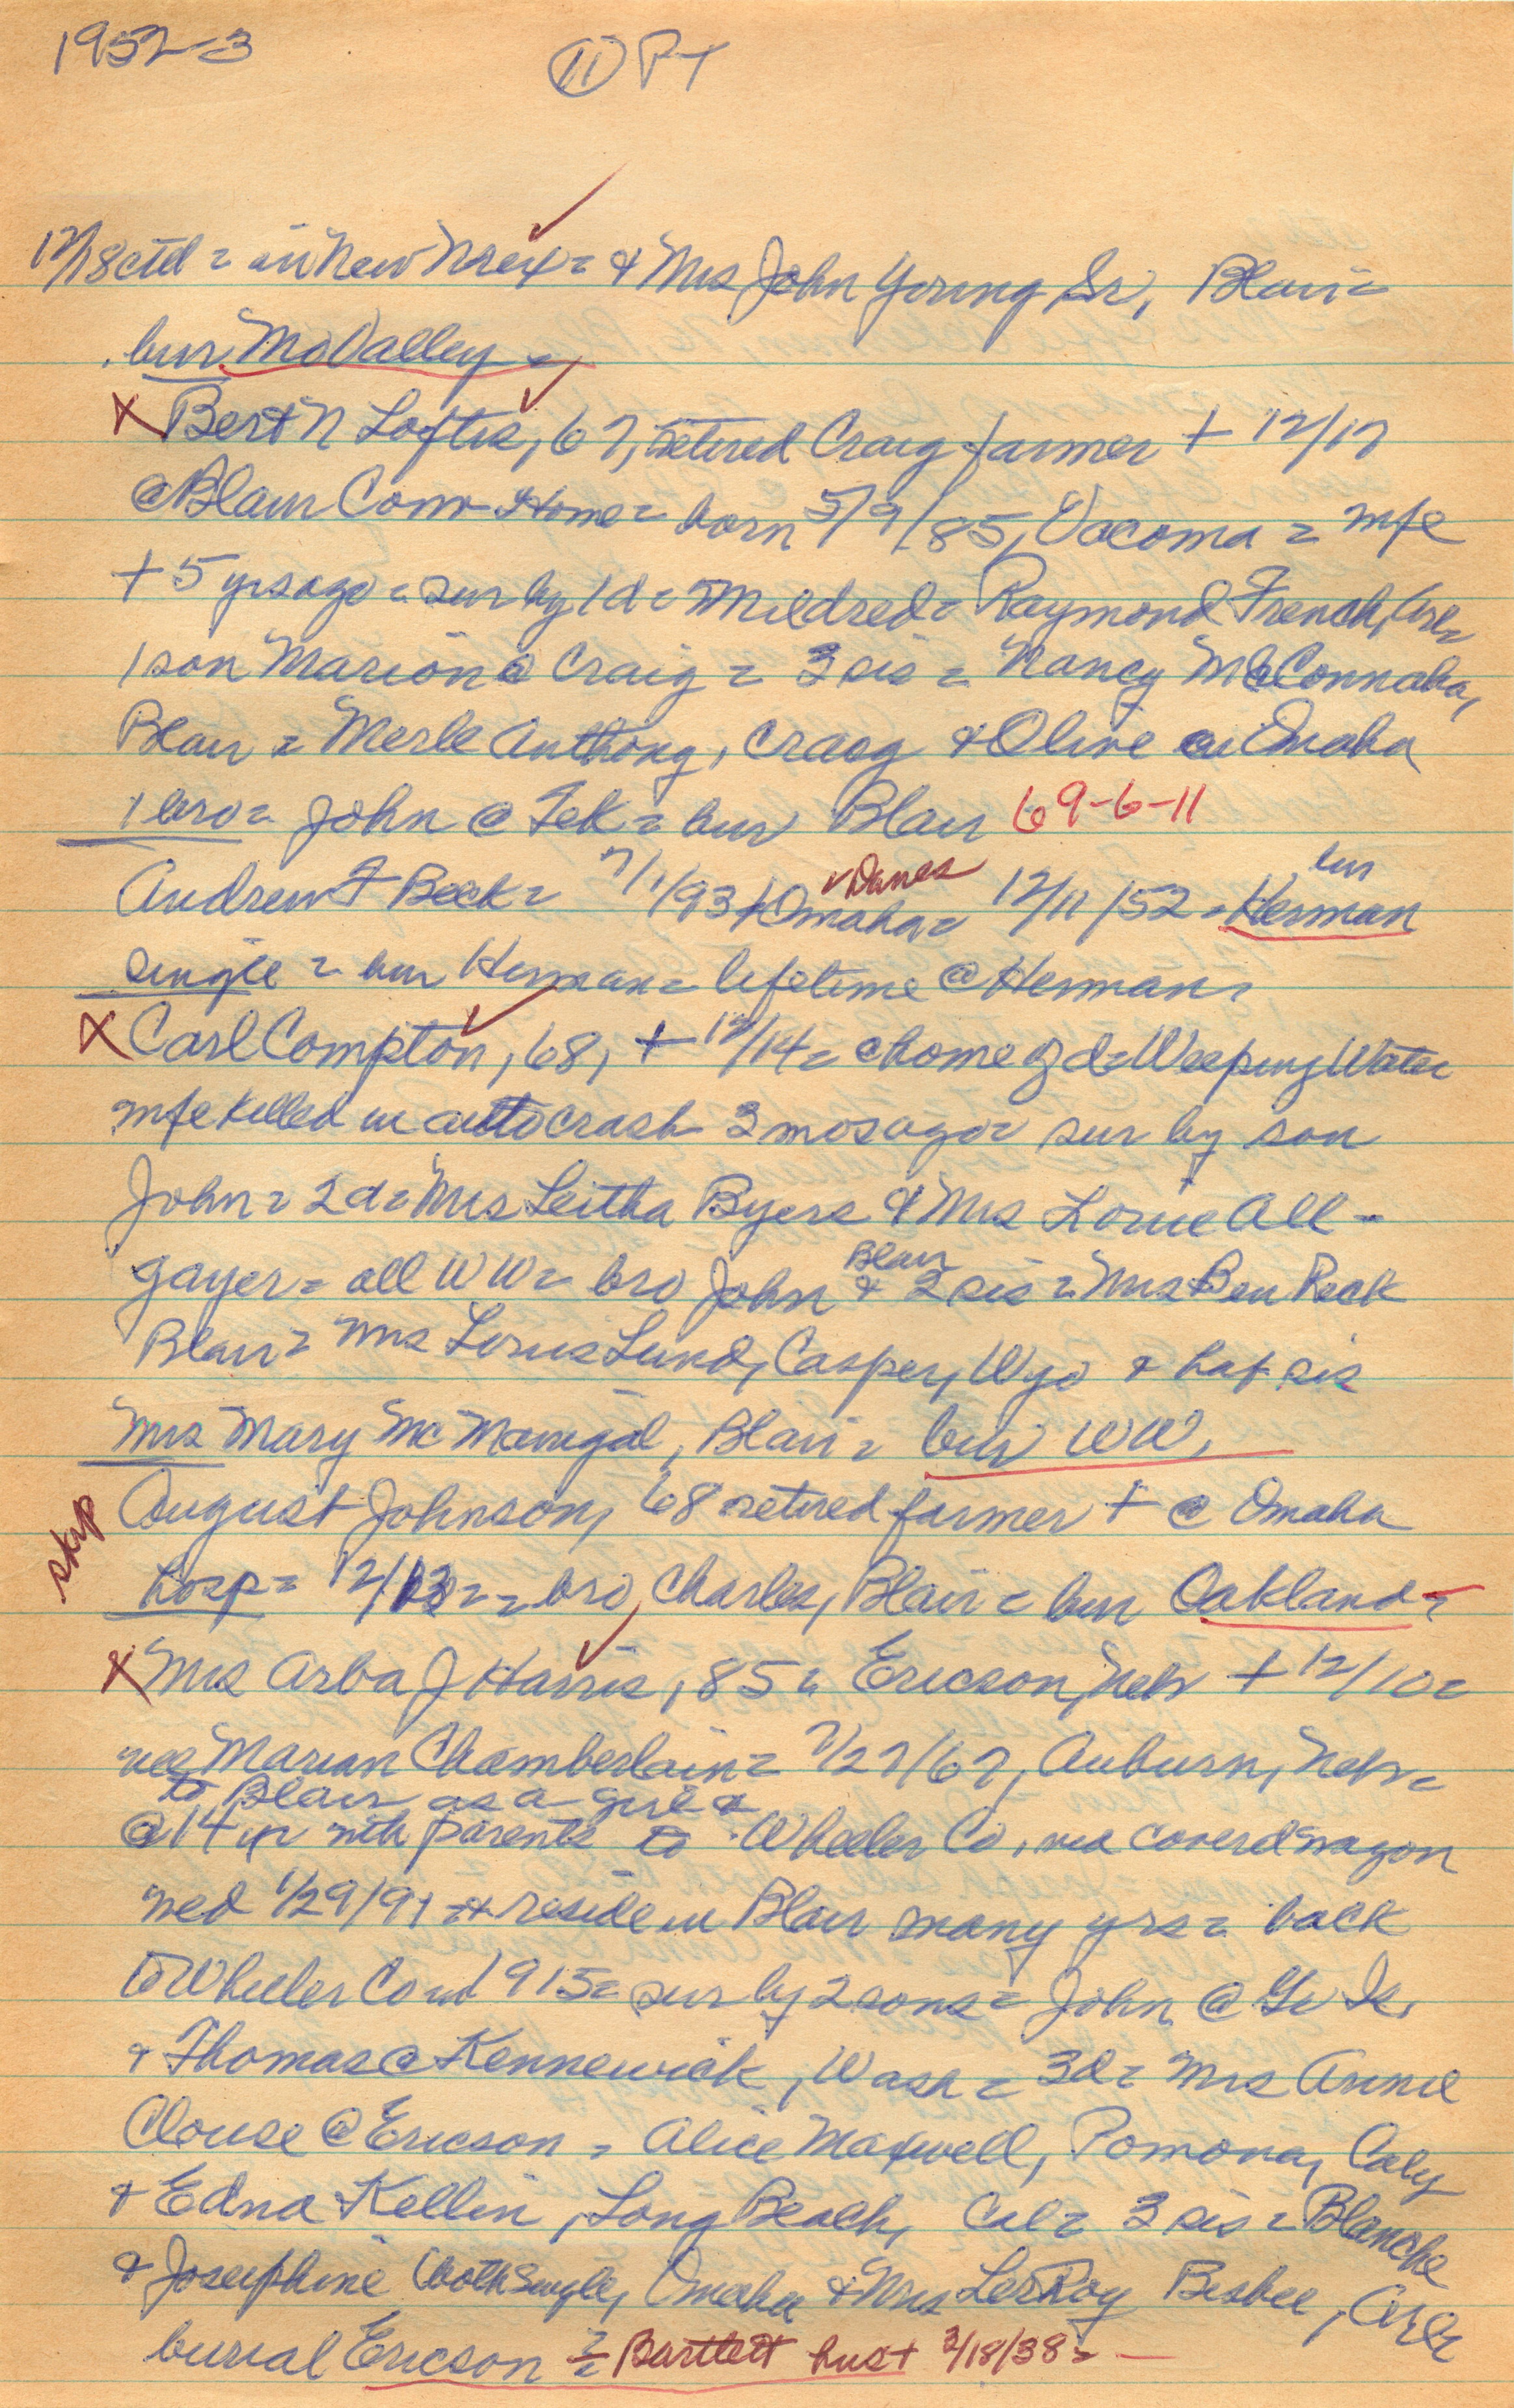 1952-3
11 PT
12/18 ctd = in New Mex = & Mrs John Young Sr, Blair =
bur Mo Valley =
X Bert N Loftis, 67, retired Craig farmer + 12/17
@ Blair Conv Home = born 5/9/85, Vacoma = wfe
+ 5 yrs ago = sur by 1 d = Mildred = Raymond French, Arl =
1 son Marion @ Craig = 3 sis = Nancy McConnaha,
Blair = Merle Anthony, Craig & Olive in Omaha
1 bro = John @ Tek = bur Blair 69-6-11
Andrew T Beck = 7/1/93 + Omaha = 12/11/52 = Herman
v Danes
bur
single = bur Herman = lifetime @ Herman =
X Carl Compton, 68, + 12/14 = @ home of d = Weeping Water
wfe killed in auto crash 3 mos ago = sur by son
John = 2 d = Mrs Leitha Byers & Mrs Lorne All-
gayer = all WW = bro John Blair & 2 sis = Mrs Ben Reck
Blair = Mrs Lorus Lund, Casper, Wyo & haf sis
Mrs Mary McManigal, Blair = bur WW,
skip
August Johnson, 68 retired farmer + @ Omaha
hosp = 12/13 = = bro, Charles, Blair = bur Oakland =
X Mrs Arba J Harris, 85 = Ericson, Nebr + 12/10 =
nee Marian Chamberlain = 7/27/67, Auburn, Nebr =
to Blair as a girl &
@ 14 yr with parents to Wheeler Co, via coverd wagon
wed 1/29/91 = & reside in Blair many yrs = back
to Wheeler Co in 1915 = sur by 2 sons = John @ Gr Is,
& Thomas @ Kennewick, Wash = 3 d = Mrs Annie
Clouse @ Ericson = Alice Maxwell, Pomona, Caly
& Edna Kellin, Long Beach, Cal = 3 sis = Blanche
& Josephine (both single, Omaha & Mrs LeRoy Bisbee, Arl =
burial Ericson = Bartlett hus + 3/18/38 =